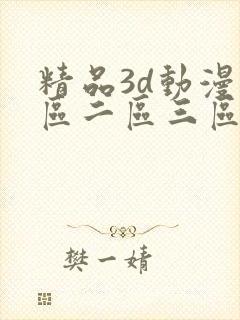 精品3d動漫
區二區三區
樊一婧